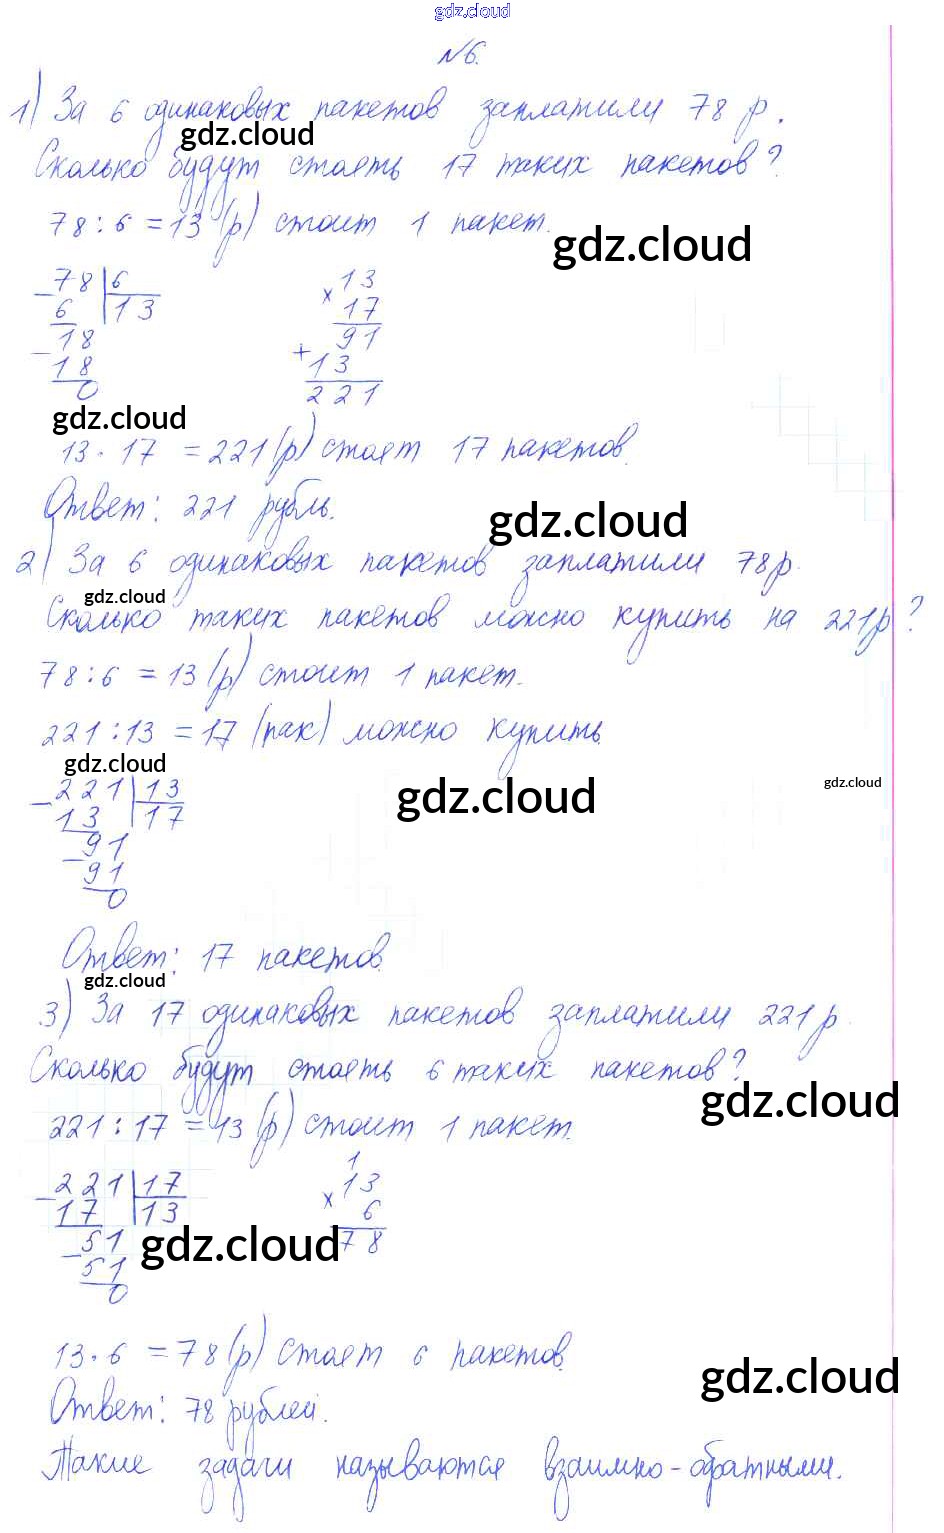 gdz.cloud
№6.
1) За 6 одинаковых пакетов заплатили 78 р.
gdz.cloud
Сколько будут стоять 17 таких пакетов?
78 : 6 = 13 (р) стоит 1 пакет.
gdz.cloud
78 | 6      13
6 | 13      × 17
18      91
18      + 13
0      221
gdz.cloud
13 · 17 = 221 (р) стоят 17 пакетов.
Ответ: 221 рубль.
gdz.cloud
2) За 6 одинаковых пакетов заплатили 78 р.
gdz.cloud
Сколько таких пакетов можно купить на 221 р?
78 : 6 = 13 (р) стоит 1 пакет.
221 : 13 = 17 (пак) можно купить.
gdz.cloud
gdz.cloud
gdz.cloud
221 | 13
13 | 17
91
91
0
Ответ: 17 пакетов.
gdz.cloud
3) За 17 одинаковых пакетов заплатили 221 р.
Сколько будут стоять 6 таких пакетов?
gdz.cloud
221 : 17 = 13 (р) стоит 1 пакет.
1
221 | 17      × 13
17 | 13      6
51      78
51
0
gdz.cloud
13 · 6 = 78 (р) стоят 6 пакетов.
gdz.cloud
Ответ: 78 рублей.
Такие задачи называются взаимно-обратными.